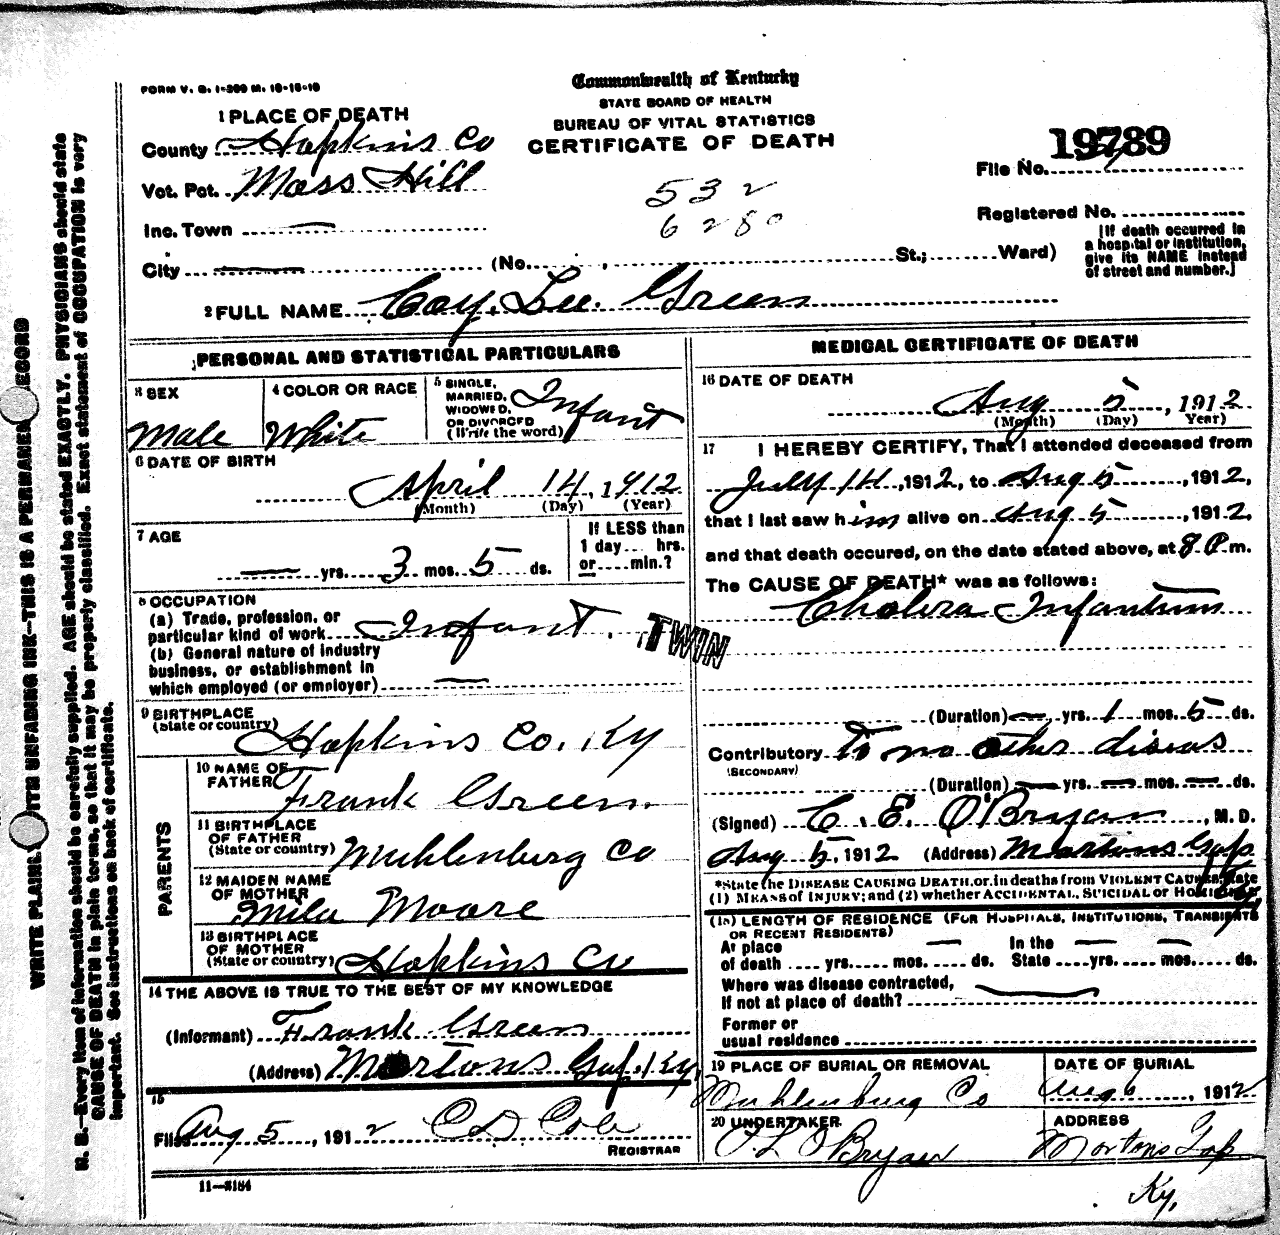 FORM V. S. 1-300 M. 10-16-10
Commonwealth of Kentucky
STATE BOARD OF HEALTH
BUREAU OF VITAL STATISTICS
CERTIFICATE OF DEATH
1 PLACE OF DEATH
County Hopkins Co
Vot. Pct. Moss Hill
Inc. Town
City (No. St.; Ward)
532
6280
19789
File No.
Registered No.
[If death occurred in
a hospital or institution,
give its NAME instead
of street and number.]
2 FULL NAME Coy. Lee. Green
PERSONAL AND STATISTICAL PARTICULARS
3 SEX
Male
4 COLOR OR RACE
White
5 SINGLE,
MARRIED,
WIDOWED,
OR DIVORCED
(Write the word)
Infant
6 DATE OF BIRTH
April 14, 1912
(Month) (Day) (Year)
7 AGE
yrs. 3 mos. 5 ds.
If LESS than
1 day... hrs.
or....min.?
8 OCCUPATION
(a) Trade, profession, or
particular kind of work Infant.
(b) General nature of industry
business, or establishment in
which employed (or employer)
TWIN
9 BIRTHPLACE
(State or country)
Hopkins Co. Ky
PARENTS
10 NAME OF
FATHER
Frank Green
11 BIRTHPLACE
OF FATHER
(State or country) Muhlenburg Co
12 MAIDEN NAME
OF MOTHER
Moore
13 BIRTHPLACE
OF MOTHER
(State or country) Hopkins Co
14 THE ABOVE IS TRUE TO THE BEST OF MY KNOWLEDGE
(Informant) Frank Green
(Address) Mortons Gap. Ky.
15
Filed Aug 5, 1912 C D Cole
REGISTRAR
11—8184
MEDICAL CERTIFICATE OF DEATH
16 DATE OF DEATH
Aug 5, 1912
(Month) (Day) (Year)
17 I HEREBY CERTIFY, That I attended deceased from
July 14, 1912, to Aug 5, 1912,
that I last saw him alive on Aug 5, 1912,
and that death occured, on the date stated above, at 8 P.m.
The CAUSE OF DEATH* was as follows:
Cholera Infantum
(Duration) yrs. 1 mos. 5 ds.
Contributory To no other diseas
(SECONDARY)
(Duration) yrs. mos. ds.
(Signed) C. E. O'Bryan, M. D.
Aug 5, 1912 (Address) Mortons Gap
Ky
*State the DISEASE CAUSING DEATH, or, in deaths from VIOLENT CAUSES, state
(1) MEANS of INJURY; and (2) whether ACCIDENTAL, SUICIDAL or HOMICIDAL
(18) LENGTH OF RESIDENCE (FOR HOSPITALS, INSTITUTIONS, TRANSIENTS
OR RECENT RESIDENTS)
At place In the
of death .... yrs..... mos.... ds. State ....yrs.... mos.... ds.
Where was disease contracted,
If not at place of death?
Former or
usual residence
19 PLACE OF BURIAL OR REMOVAL
Muhlenburg Co
DATE OF BURIAL
Aug 6, 1912
20 UNDERTAKER
O'Bryan
ADDRESS
Mortons Gap
Ky,
WRITE PLAINLY WITH UNFADING INK—THIS IS A PERMANENT RECORD
N. B.—Every item of information should be carefully supplied. AGE should be stated EXACTLY. PHYSICIANS should state
CAUSE OF DEATH in plain terms, so that it may be properly classified. Exact statement of OCCUPATION is very
important. See instructions on back of certificate.